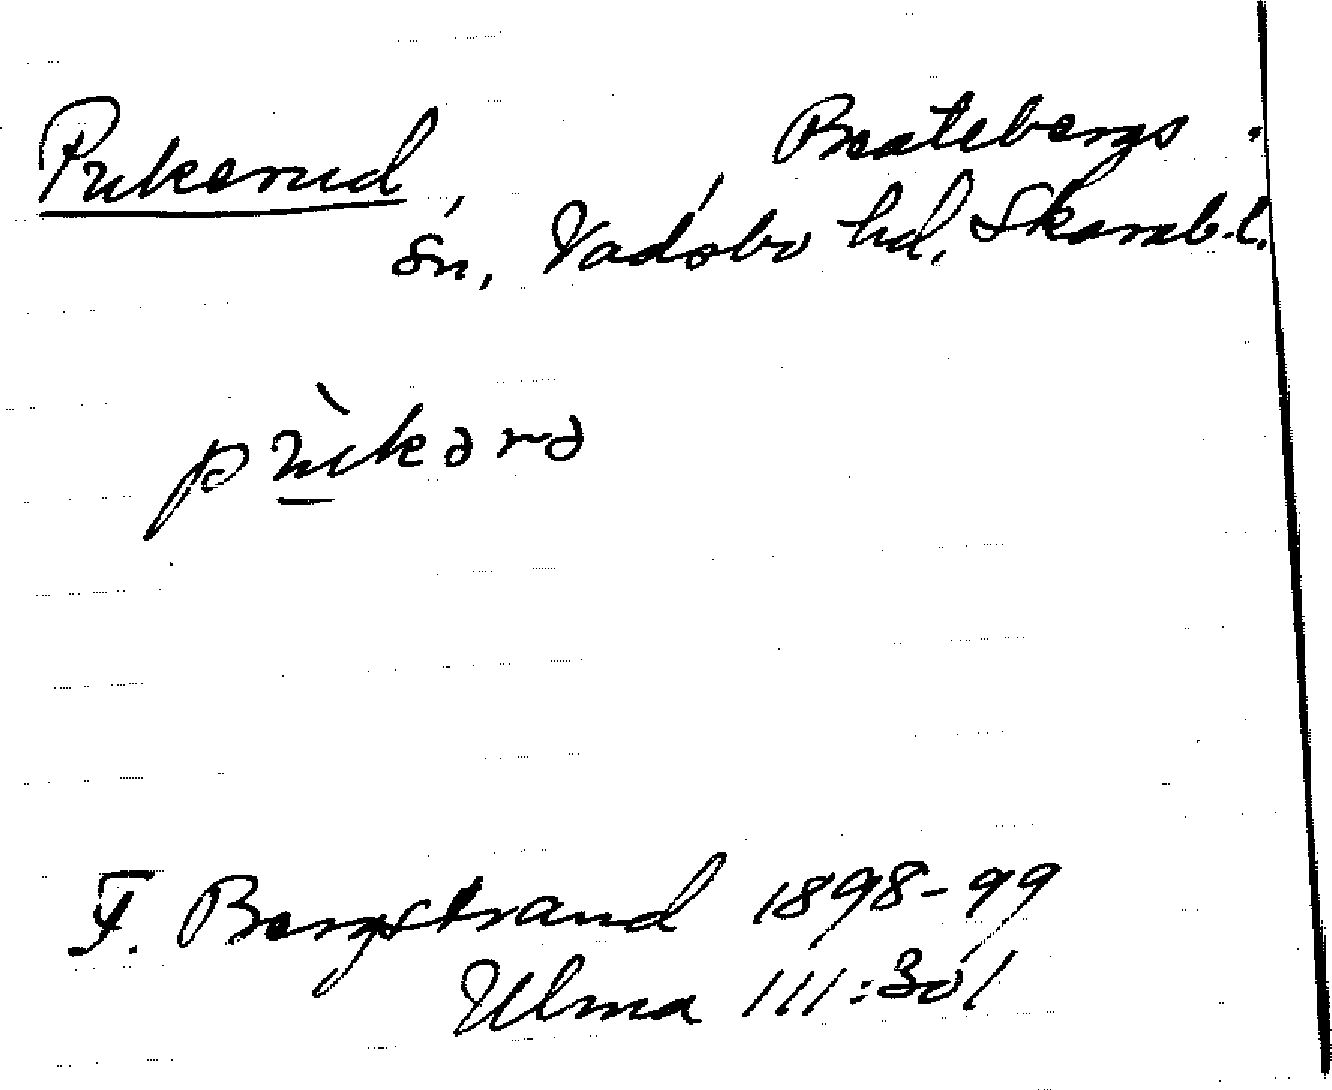 Pukerud, Beatebergs
sn, Vadsbo hd, Skarab.l.
pùkərə
F. Bergstrand 1898-99
Ulma 111:301